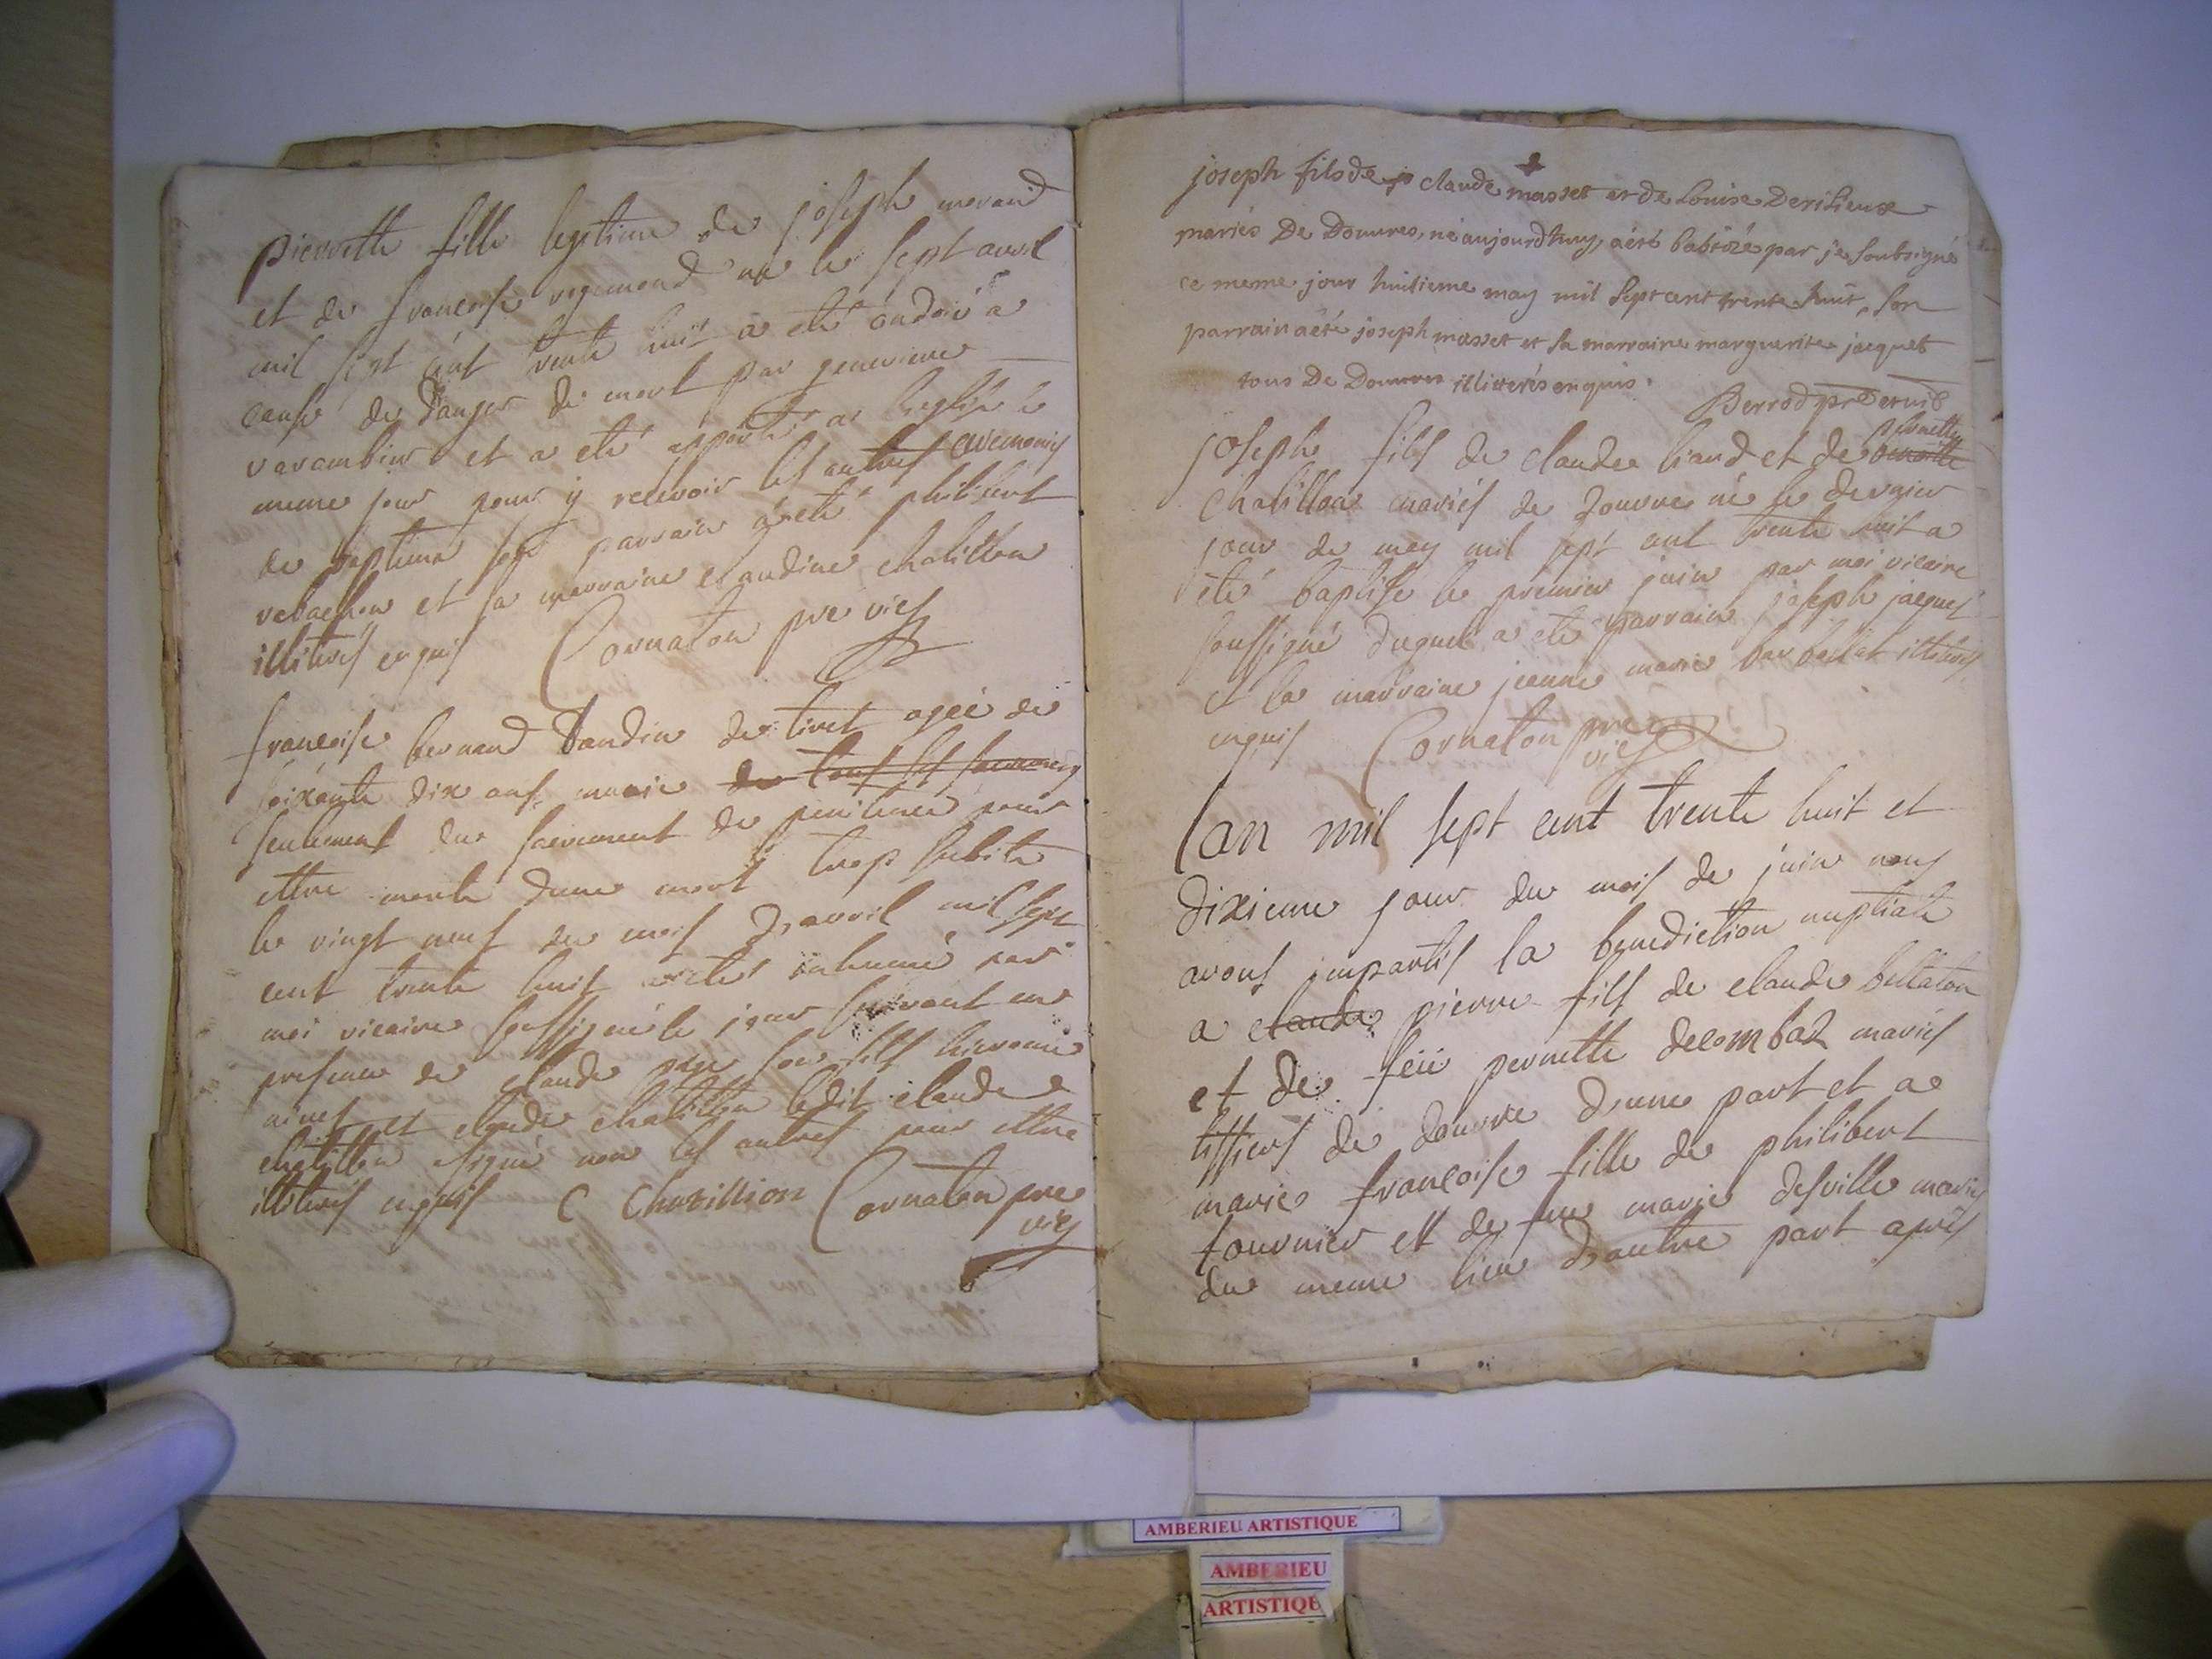 pierrette fille legitime de joseph morand
et de francoise regemond née le sept avril
mil sept cent trente huit a eté ondoié a
cause de danger de mort par genevieve
varambier et a eté apporté a leglise le
meme jour pour y recevoir les autres ceremonies
de bapteme son parrain a eté philibert
et sa marraine claudine chatillon
illiterés enquis Cornaton pre vic
francoise bernand Dandin de tiret agée de
soixante dix ans munie de tous les sacremens
seulement du sacrement de penitence pour
ettre morte dune mort trop subite
le vingt neuf du mois d'avril mil sept
cent trente huit a eté inhumé par
moi vicaire soussigné le jour suivant en
presence de claude page son fils hieronime
ninet et claude chatillon ledit claude
chatillon signé non les autres pour ettre
illiterés enquis C Chatillion Cornaton pre
vic
joseph fils de jo claude masset et de Louise Derisieux
mariés De Douvres, né aujourdhuy, a été babtizé par je soubsigné
ce meme jour huitieme may mil sept cent trente huit, son
parrain a été joseph masset et sa marraine marguerite jacquet
tous De Douvres illitterés enquis.
Perrod pre
pernette
joseph fils de claude liaud et de benoitte
Chatillon mariés de douvre né le dernier
jour de may mil sept cent trente huit a
été baptise le premier juin par moi vicaire
soussigné duquel a eté parrain joseph jacquet
et la marraine jeanne marie barbollat illiterés
enquis Cornaton pre
vic
Lan mil sept cent trente huit et
dixieme jour du mois de juin nous
avons impartis la benediction nuptiale
a claude pierre fils de claude bellaton
et de feüe pernette decombaz mariés
tissiers de douvre d'une part et a
marie francoise fille de philibert
fournier et de feue marie desville mariés
du meme lieu d'autre part après
AMBERIEU ARTISTIQUE
AMBERIEU
ARTISTIQUE